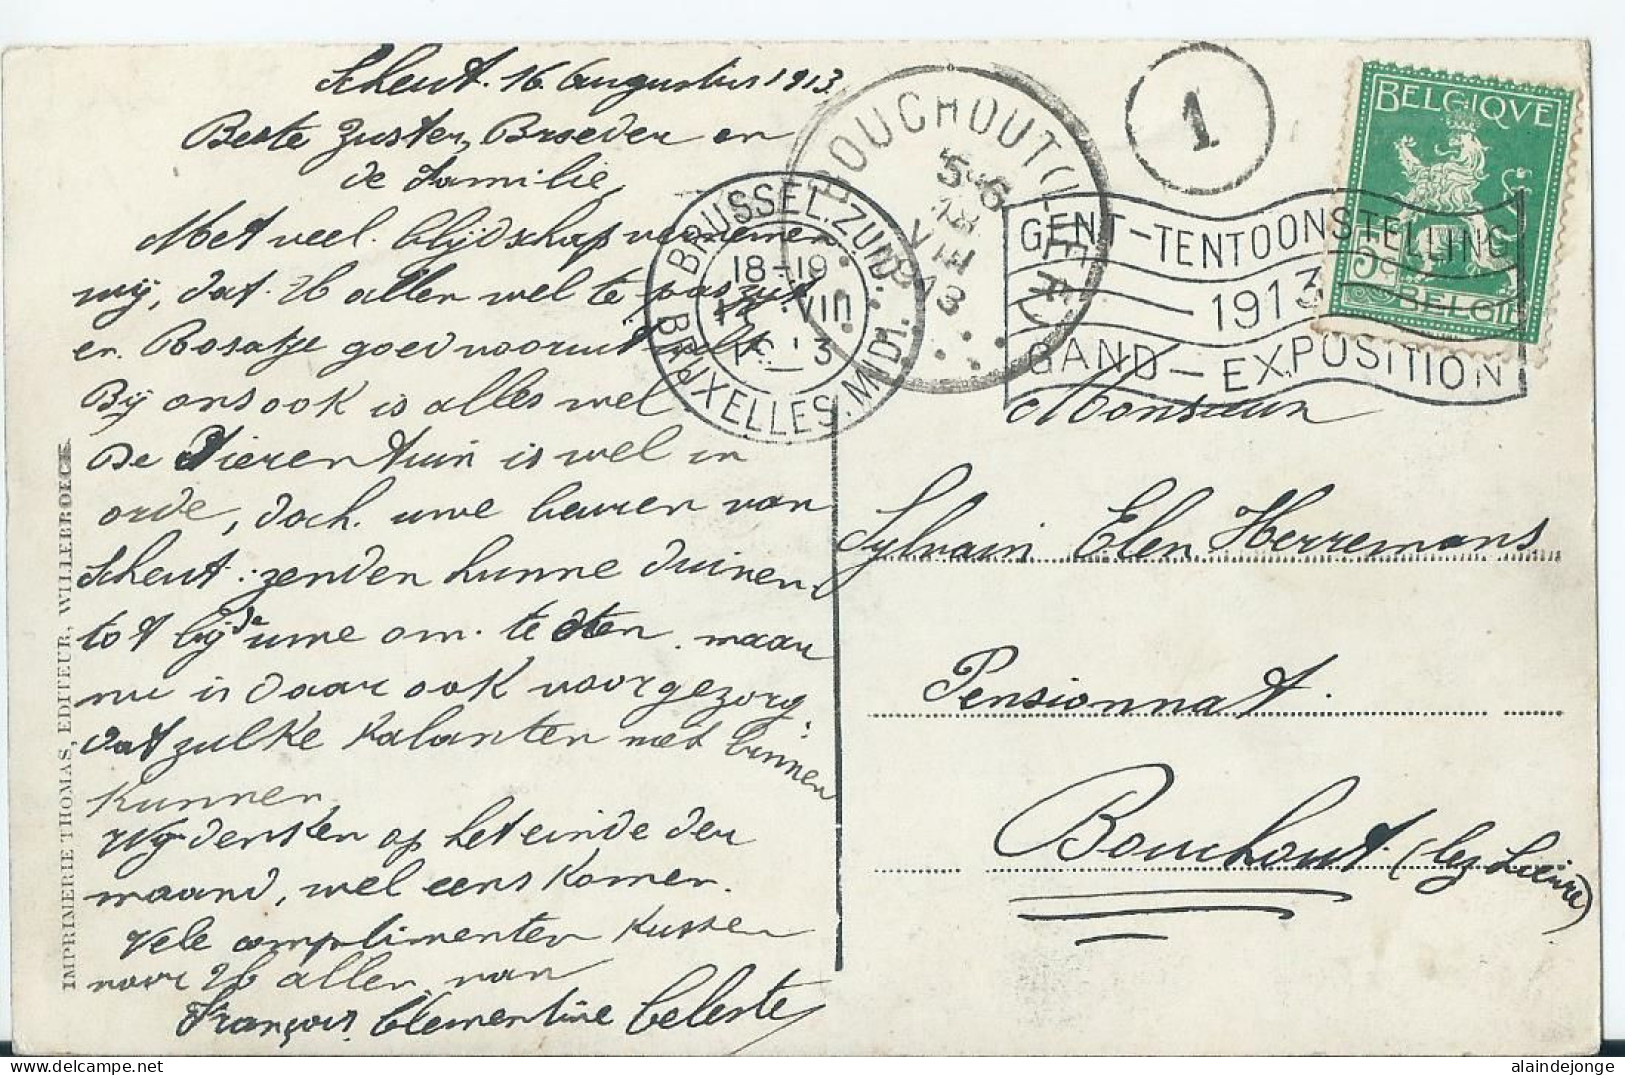 Scheut. 16 Augustus 1913
Beste Zuster, Broeder en
de Familie,
Met veel blijdschap vernemen
wij, dat U allen wel te pas zijt
en Rosatje goed vooruit
Bij ons ook is alles wel
De Dierentuin is wel in
orde, doch. uwe beuren van
Scheut: zenden hunne duinen
tot bij de uwe om te eten. maar
nu is daar ook voorgezorg
dat zulke kalanten niet binnen
kunnen
Wij denken op het einde der
maand, wel eens komen.
Vele complimenten kussen
voor U allen van
François Clementine Celeste
IMPRIMERIE THOMAS, EDITEUR, WILLEBROECK
BRUSSEL.ZUID.
18-19
VIII
BRUXELLES.MIDI.
BOUCHOUT (LIER)
5-6
18
VIII
1913
1
GENT-TENTOONSTELLING
1913
GAND-EXPOSITION
BELGIQVE
5c
BELGIË
Monsieur
Sylvain Elen Herremans
Pensionnat.
Bouchout. (lez Lierre)
alaindejonge
delcampe.net